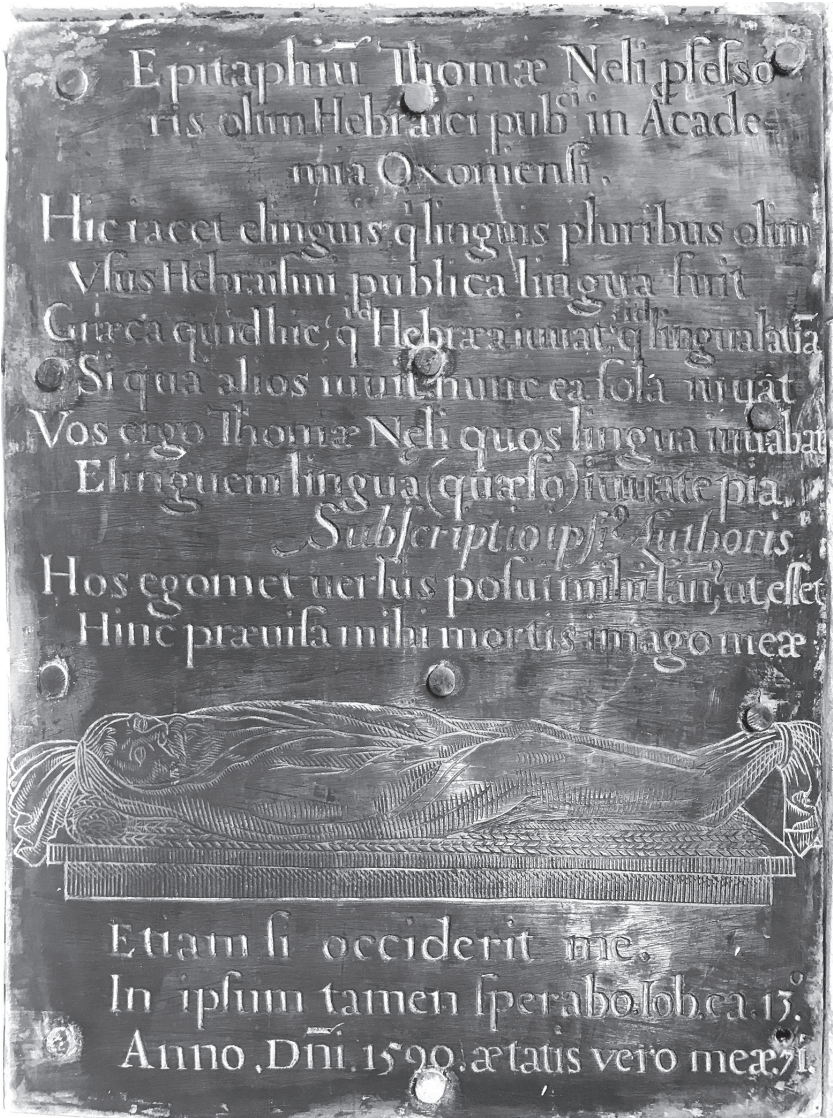 Epitaphiū Thomæ Neli pſeſso
ris olim Hebraici pub in Acade-
mia Oxoniensi.
Hic iacet elinguis, q linguis pluribus olim
Vſus Hebraiſmi publica lingua fuit
Græca quid hic, qd Hebræa iuuat, q lingua latīa
Si qua alios iuuit, nunc ea ſola iuuāt
Vos ergo Thomæ Neli quos lingua iuuabat
Elinguem lingua (quæſo) iuuate pia.
Subſcriptio ipſi⁹ Authoris
Hos egomet uerſus poſui mihi ſan⁹, ut, eſſet
Hinc præuiſa mihi mortis imago meæ
Etiam ſi occiderit me.
In ipſum tamen ſperabo. Iob. ca. 13.
Anno .Dñi. 1590. ætatis vero meæ. 71.